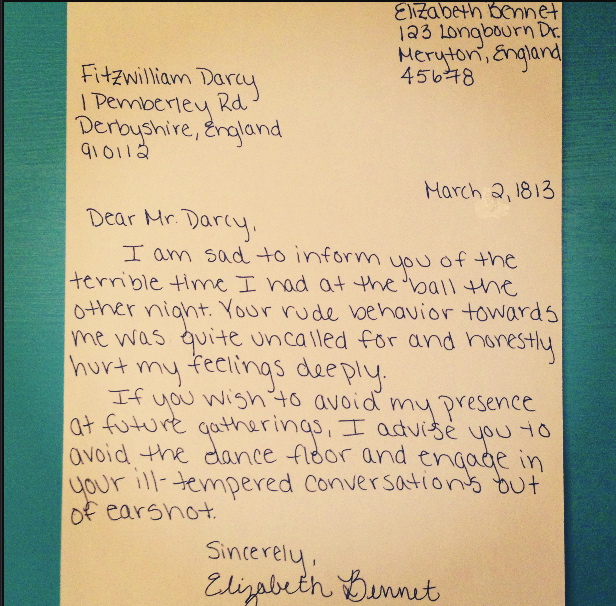 Elizabeth Bennet
123 Longbourn Dr.
Meryton, England
45678
Fitzwilliam Darcy
1 Pemberley Rd
Derbyshire, England
910112
March 2, 1813
Dear Mr. Darcy,
I am sad to inform you of the
terrible time I had at the ball the
other night. Your rude behavior towards
me was quite uncalled for and honestly
hurt my feelings deeply.
If you wish to avoid my presence
at future gatherings, I advise you to
avoid the dance floor and engage in
your ill-tempered conversations out
of earshot.
Sincerely,
Elizabeth Bennet